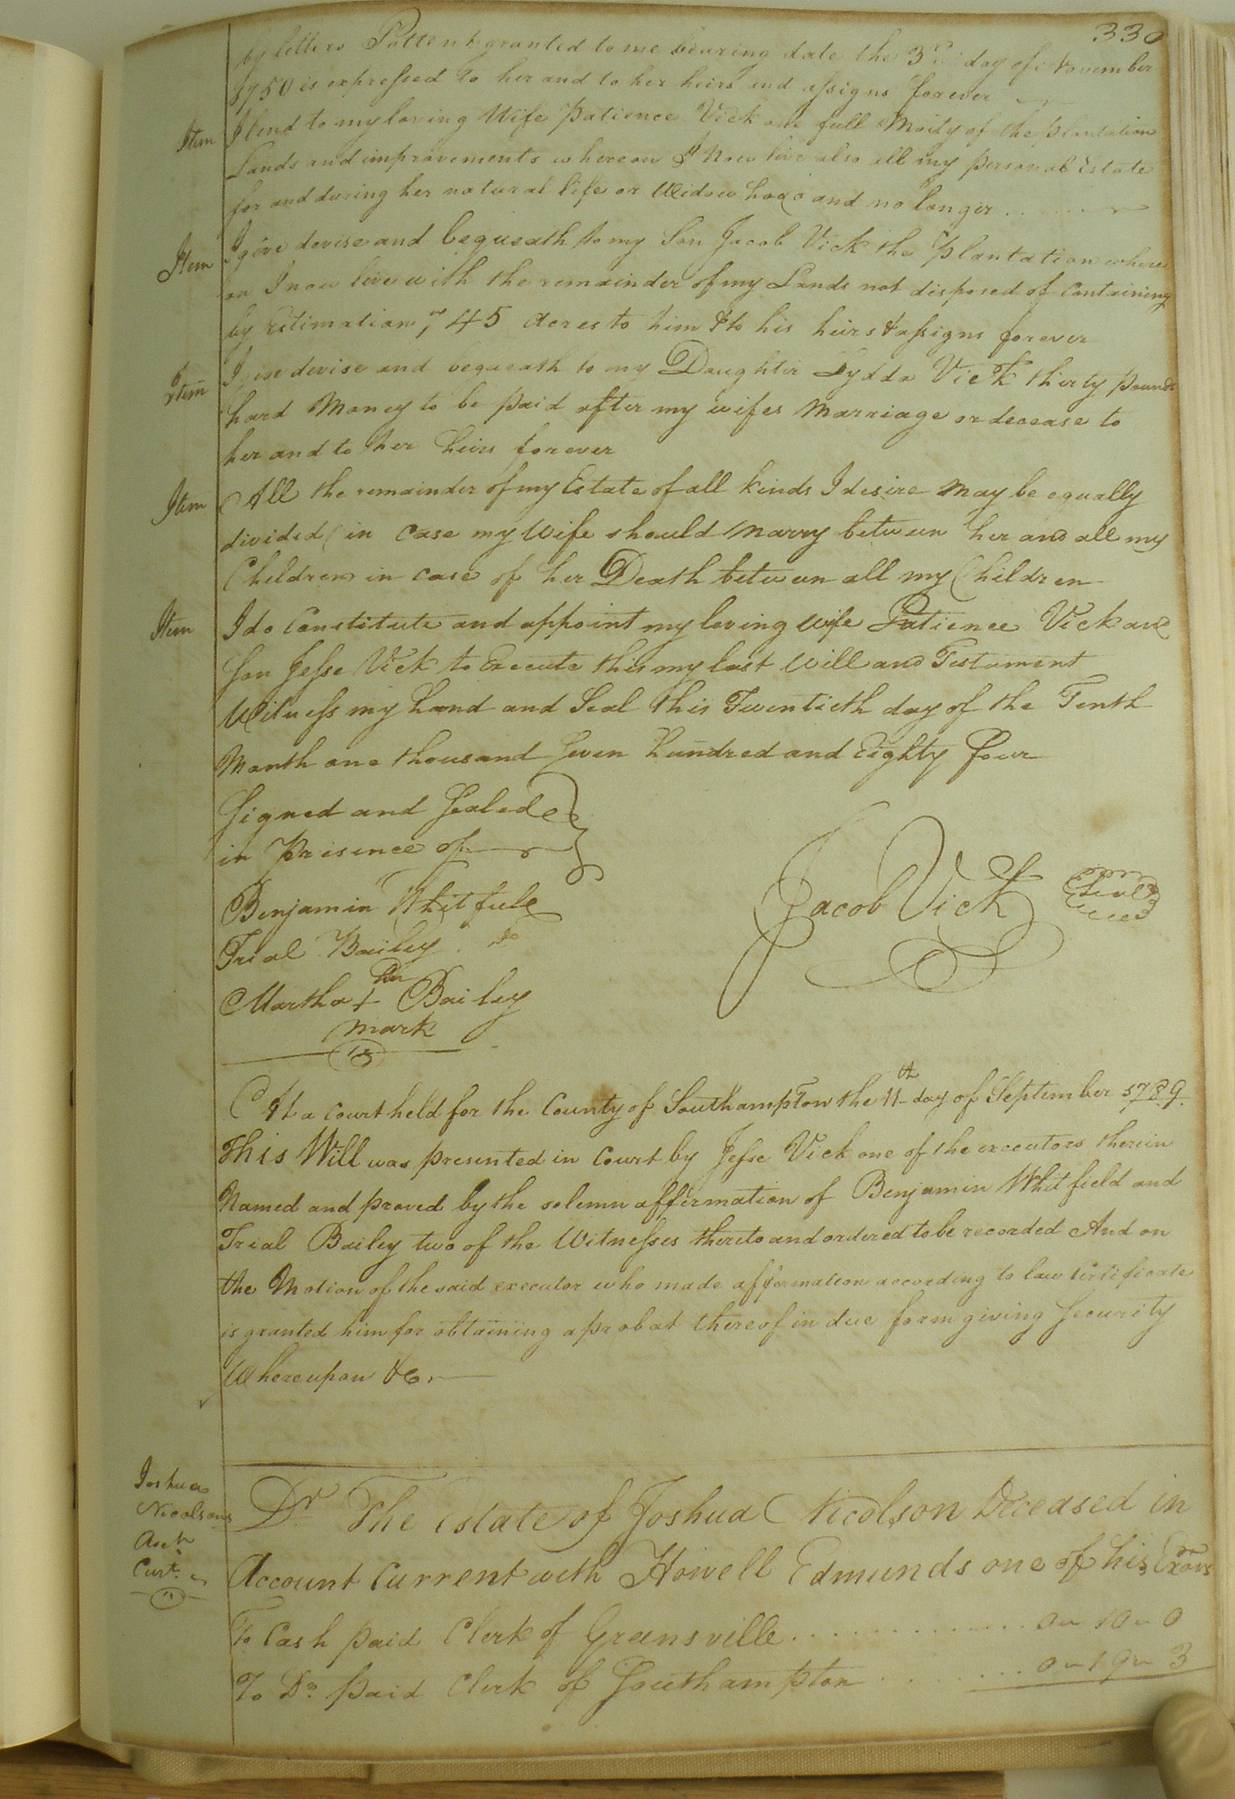 330
by letters Pattent granted to me bearing date the 3d day of November
1750 is expressed to her and to her heirs and assigns forever
Item I lend to my loving Wife Patience Vick one full Moity of the plantation
Lands and improvements whereon I now live also all my personal Estate
for and during her natural life or Widowhood and no longer
Item I give devise and bequeath to my Son Jacob Vick the plantation where
on I now live with the remainder of my Lands not disposed of Containing
by Estimation 745 Acres to him & to his heirs & assigns forever
Item I give devise and bequeath to my Daughter Lydda Vick thirty pounds
hard Money to be paid after my wifes Marriage or decease to
her and to her heirs forever
Item All the remainder of my Estate of all kinds I desire may be equally
divided (in case my Wife should marry between her and all my
Children in case of her Death between all my Children
Item I do Constitute and appoint my loving wife Patience Vick and
Son Jesse Vick to Execute this my last Will and Testament
Witness my hand and Seal this Twentieth day of the Tenth
Month one thousand Seven hundred and Eighty four
Signed and Sealed
in Presence of
Jacob Vick Seal
Benjamin Whitfield
Trial Bailey
her
Martha + Bailey
mark
At a court held for the County of Southampton the 11th day of September 1789.
This Will was presented in Court by Jesse Vick one of the executors therein
Named and proved by the solemn affirmation of Benjamin Whitfield and
Trial Bailey two of the Witnesses thereto and ordered to be recorded And on
the Motion of the said executor who made affirmation according to law certificate
is granted him for obtaining a probat thereof in due form giving Security
Whereupon &c.
Joshua
Nicolsons
Acct
Curt.
Dr The Estate of Joshua Nicolson Deceased in
Account Current with Howell Edmunds one of his Exors
To Cash paid Clerk of Greensville 0 - 10 - 0
To Do paid Clerk of Southampton 0 - 19 - 3